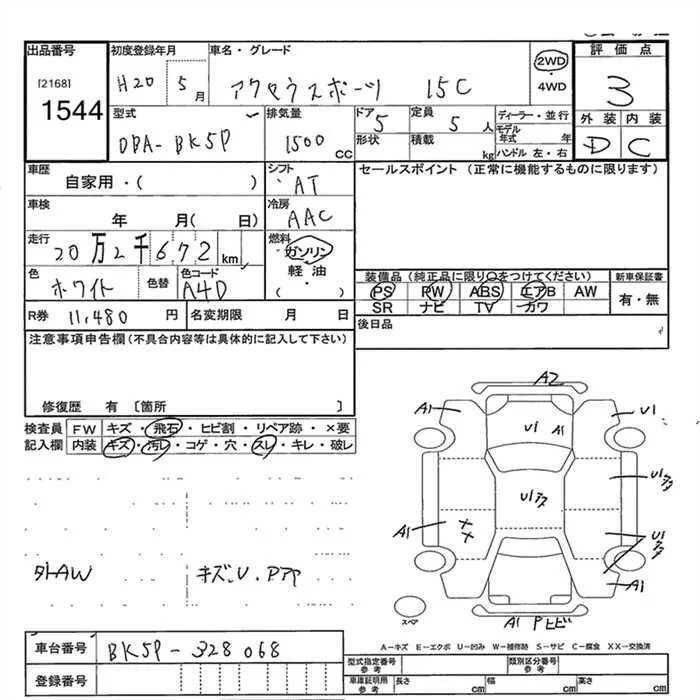 出品番号 初度登録年月 車名・グレード 2WD ・ 4WD 評価点
[2168] 1544 H20 5月 アクセラスポーツ 15C 3
型式 排気量 ドア 定員 ディーラー・並行 外装 内装
DBA-BK5P 1500 CC 5 5人 モデル年式 年 D C
形状 積載 kg ハンドル 左・右
車歴 シフト セールスポイント (正常に機能するものに限ります)
自家用・( ) AT
車検 冷房
年 月( 日) AAC
走行 燃料
20万2千672 km ガソリン
軽油
・
( )
色 色替 色コード 装備品(純正品に限り〇をつけてください) 新車保証書
ホワイト A4D PS PW ABS エアB AW 有・無
SR ナビ TV カワ
R券 11,480 円 名変期限 月 日 後日品
注意事項申告欄(不具合内容等は具体的に記入して下さい)
修復歴 有 〔箇所 〕
検査員 FW キズ・飛石・ヒビ割・リペア跡・×要
記入欄 内装 キズ・汚レ・コゲ・穴・スレ・キレ・破レ
A2
A1 U1
U1 A1
U1
U1
A1 XX U1
A1
スペア A1 Pヒビ
外AW キズ、U.Pアア
A-キズ E-エクボ U-凹み W-補修跡 S-サビ C-腐食 XX-交換済
車台番号 BK5P-328068
型式指定番号 参考 類別区分番号 参考
登録番号 車庫証明用 参考 長さ cm 幅 cm 高さ cm